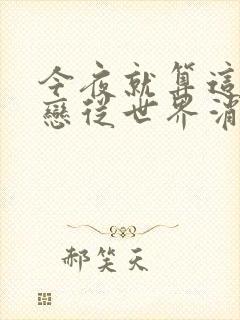 今夜就算這
戀從世界消
郝笑天